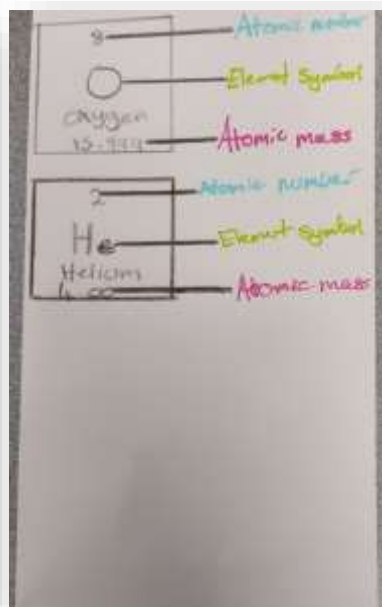 8 Atomic number
O Element Symbol
Oxygen
15.999 Atomic mass
2 Atomic number
He Element symbol
Helium
4.00 Atomic mass